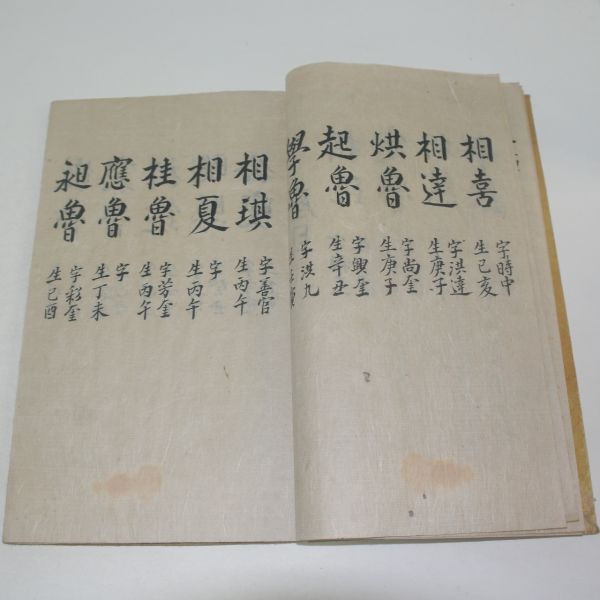 相喜
字時中
生己亥
相達
字洪達
生庚子
烘魯
字尚奎
生庚子
起魯
字興奎
生辛丑
學魯
字洪九
相琪
字善官
生丙午
相夏
字
生丙午
桂魯
字芳奎
生丙午
應魯
字
生丁未
昶魯
字彩奎
生己酉